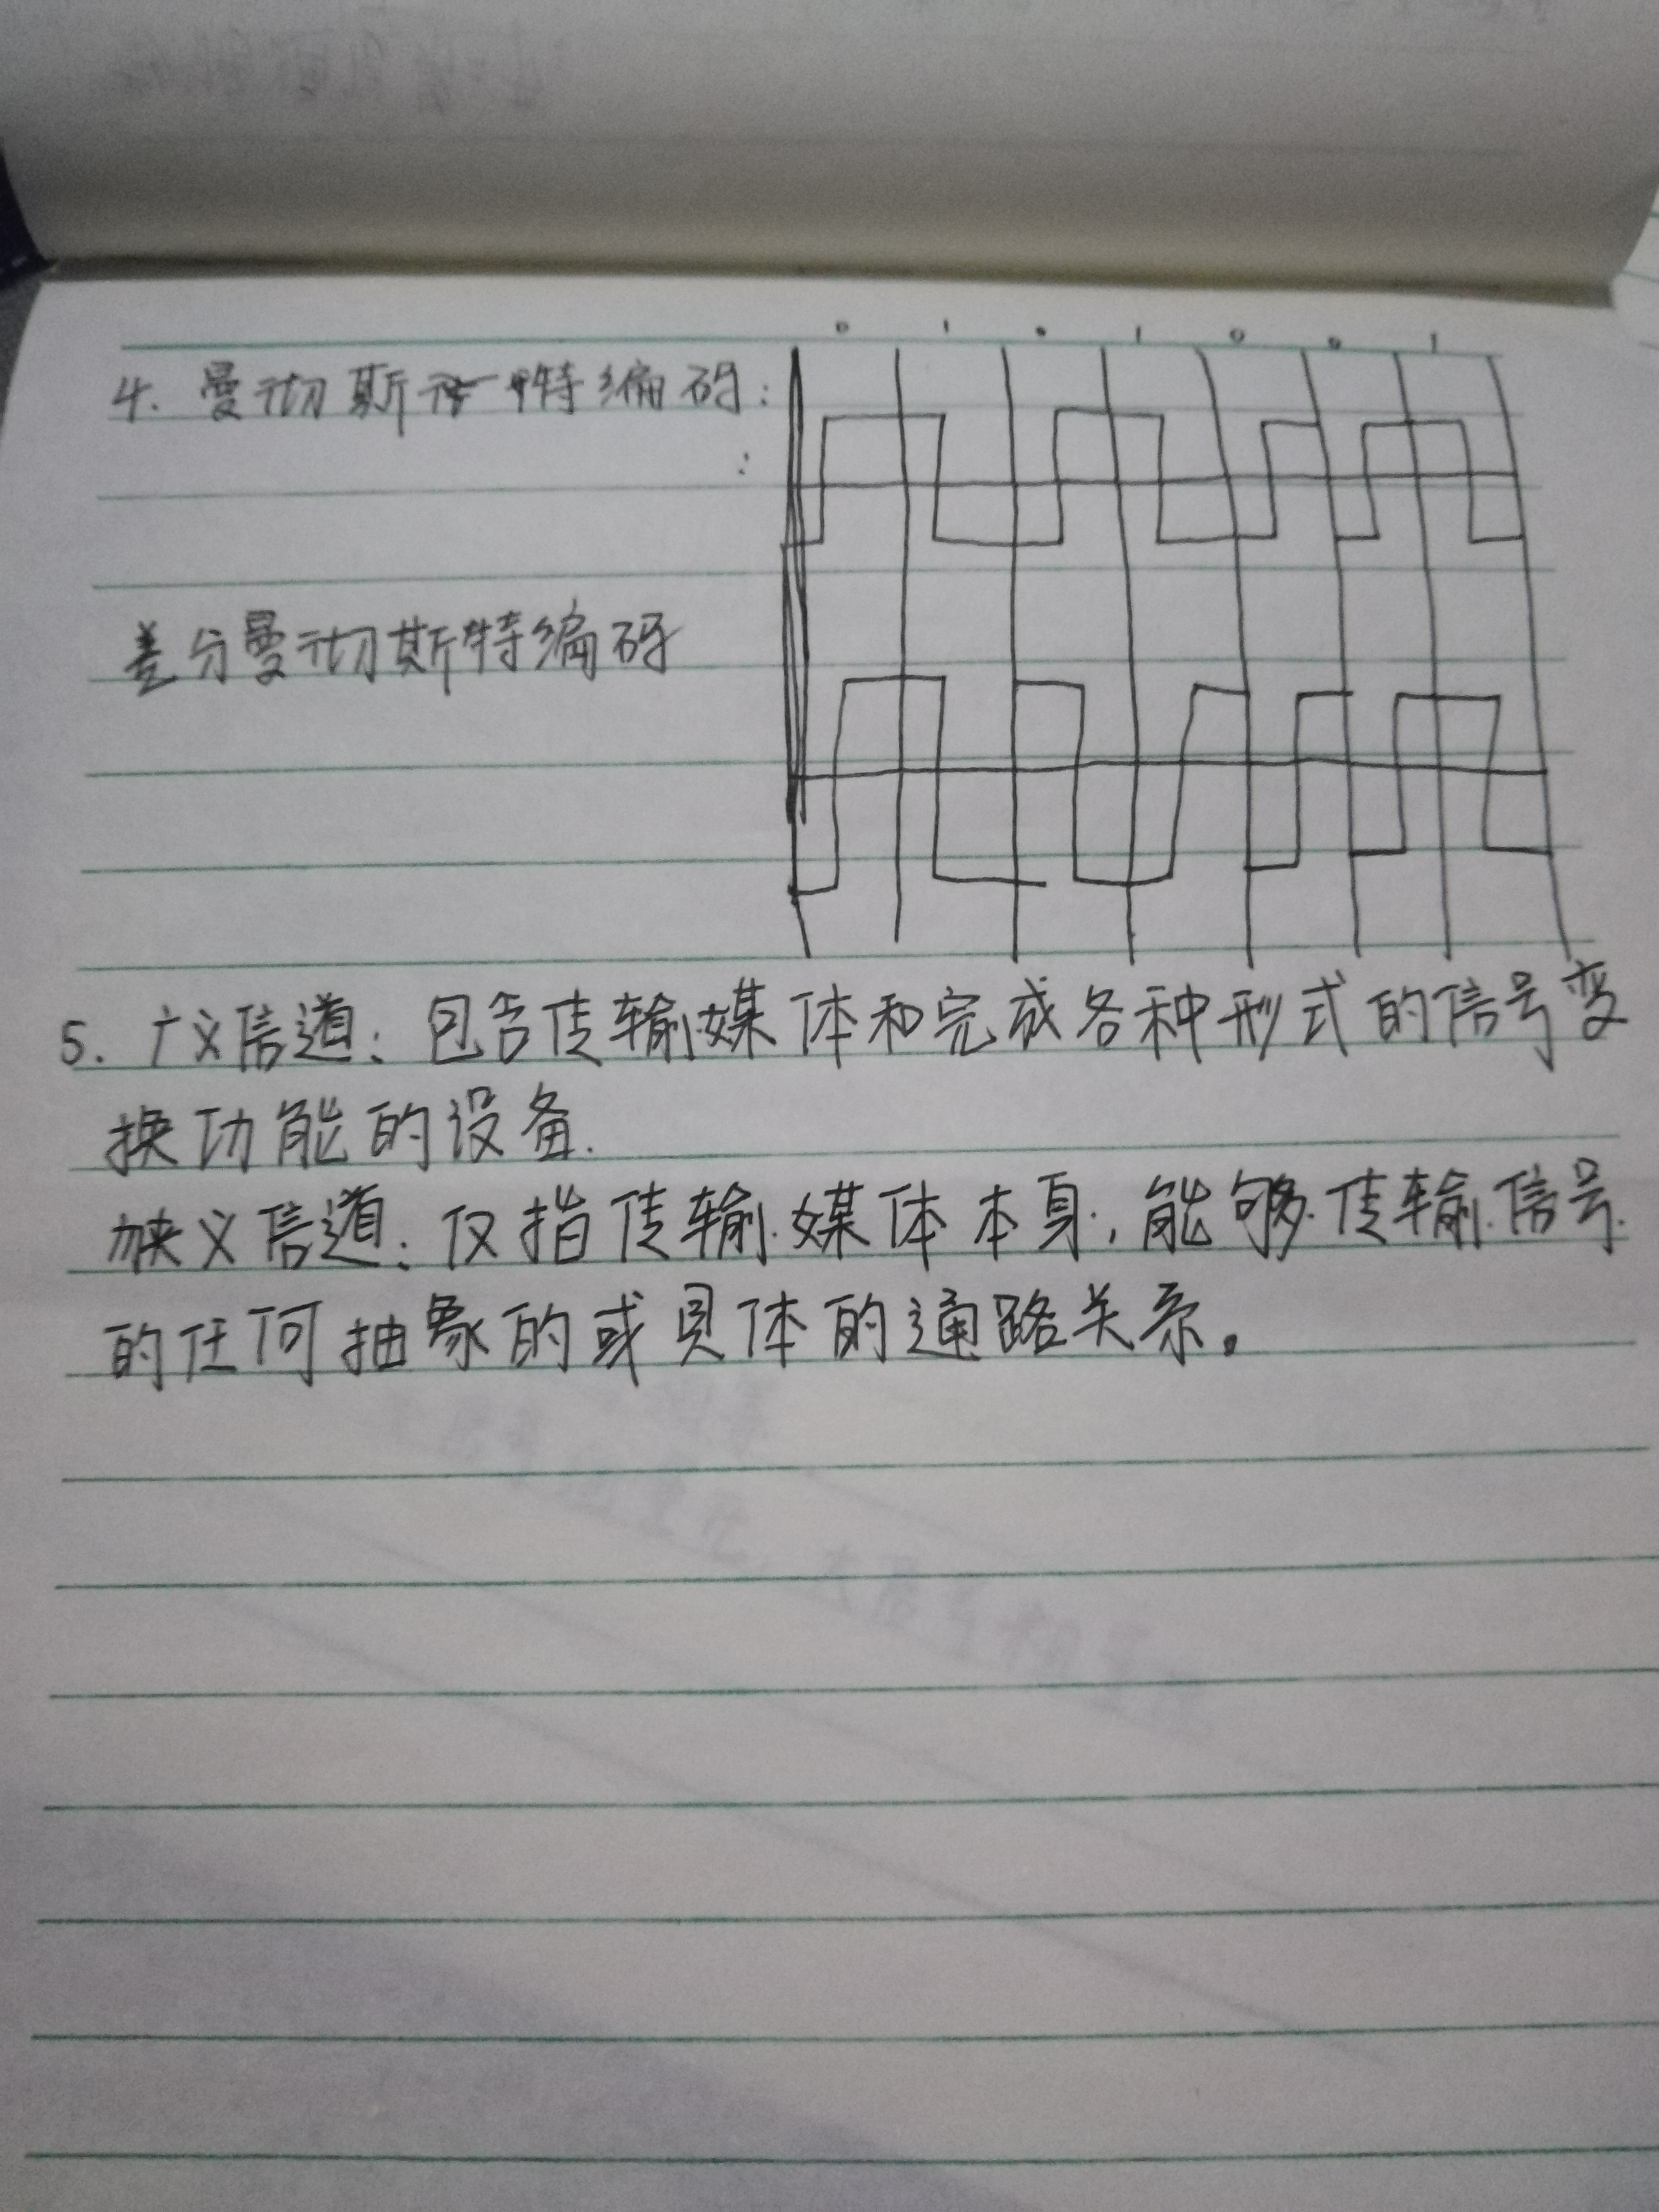 0 1 0 1 0 0 1
4. 曼彻斯特编码:
:
差分曼彻斯特编码
5. 广义信道: 包含传输媒体和完成各种形式的信号变
换功能的设备.
狭义信道: 仅指传输媒体本身, 能够传输信号
的任何抽象的或具体的通路关系。